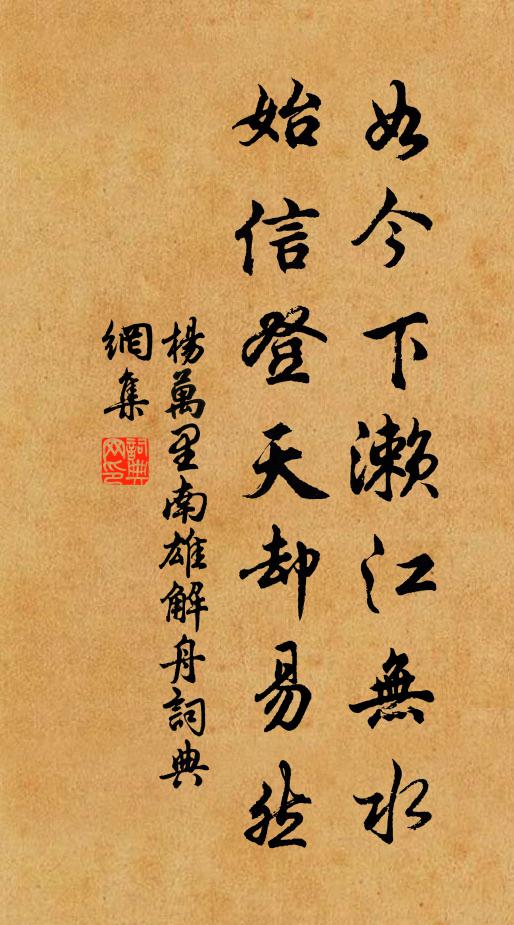 如今下瀨江無水
始信登天却易然
楊萬里南雄解舟詞典
網集
詞典
网印